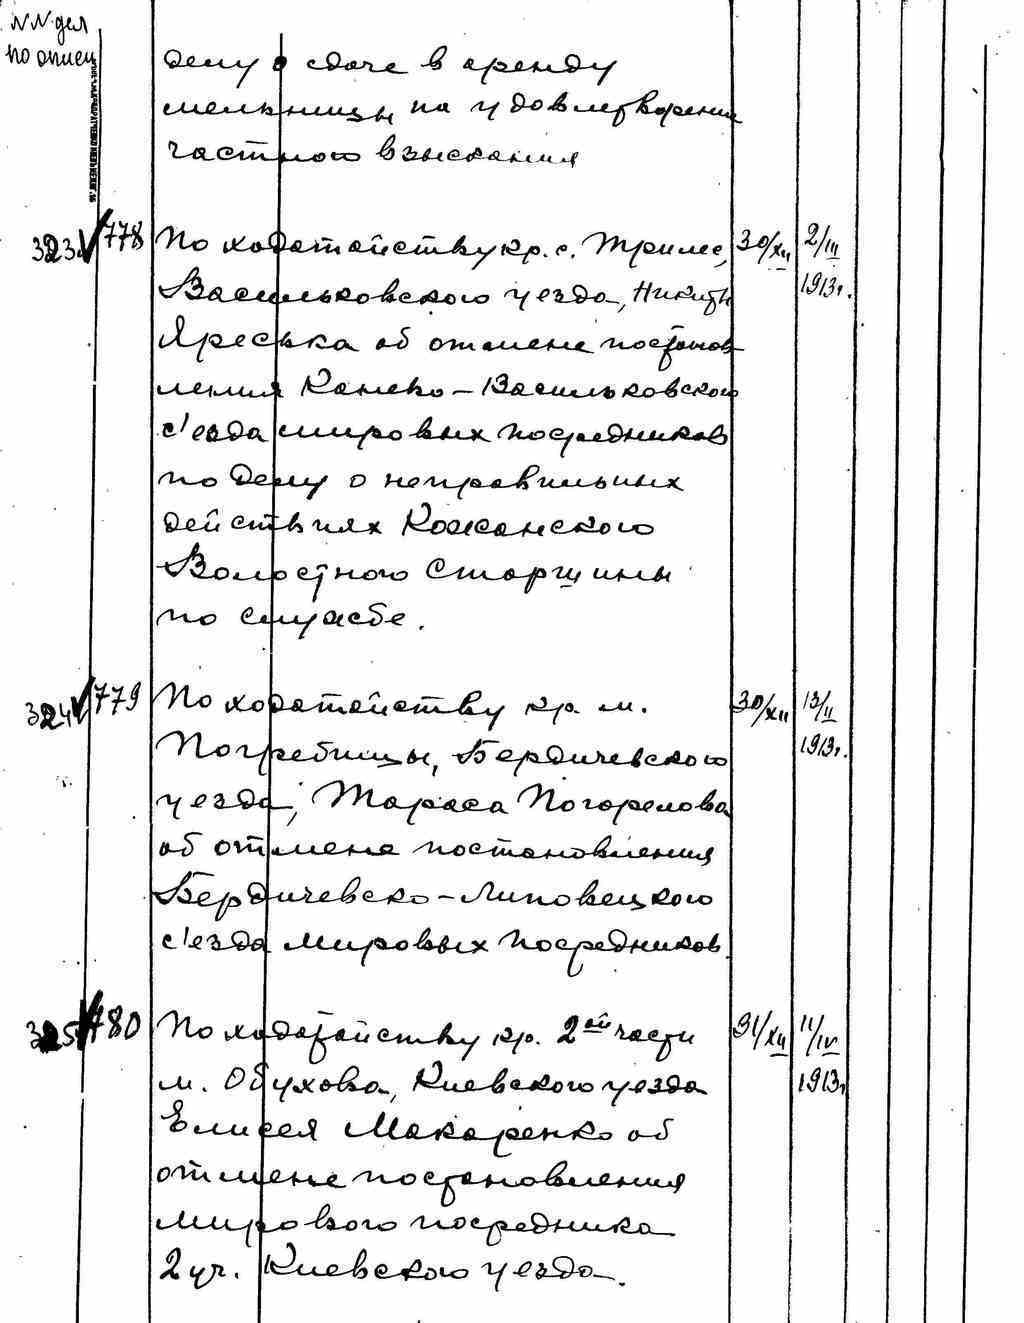 NN дел
по описи
делу о сдаче в аренду
мельницы на удовлетворение
частного взыскания
323 778 По ходатайству кр. с. Трилес, 30/XII 2/III
Васильковского уезда, Никиты 1913г.
Яреська об отмене постанов-
ления Канево-Васильковского
с'езда мировых посредников
по делу о неправильных
действиях Кожанского
Волостного Старшины
по службе.
324 779 По ходатайству кр. м. 30/XII 13/II
Погребищы, Бердичевского 1913г.
уезда, Тараса Погорелова
об отмене постановления
Бердичевско-Липовецкого
с'езда мировых посредников.
325 780 По ходатайству кр. 2ой части 31/XII 11/IV
м. Обухова, Киевского уезда 1913г
Елисея Макаренко об
отмене постановления
мирового посредника
2 уч. Киевского уезда.